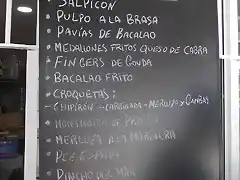 SALPICON
• PULPO A LA BRASA
• PAVÍAS DE BACALAO
• MEDALLONES FRITOS QUESO DE CABRA
• FINGERS DE GOUDA
• BACALAO FRITO
• CROQUETAS:
CHIPIRÓN - CARRILLADA - MERLUZA Y GAMBAS
• MERLUZA A LA
•
• PINCHO DE